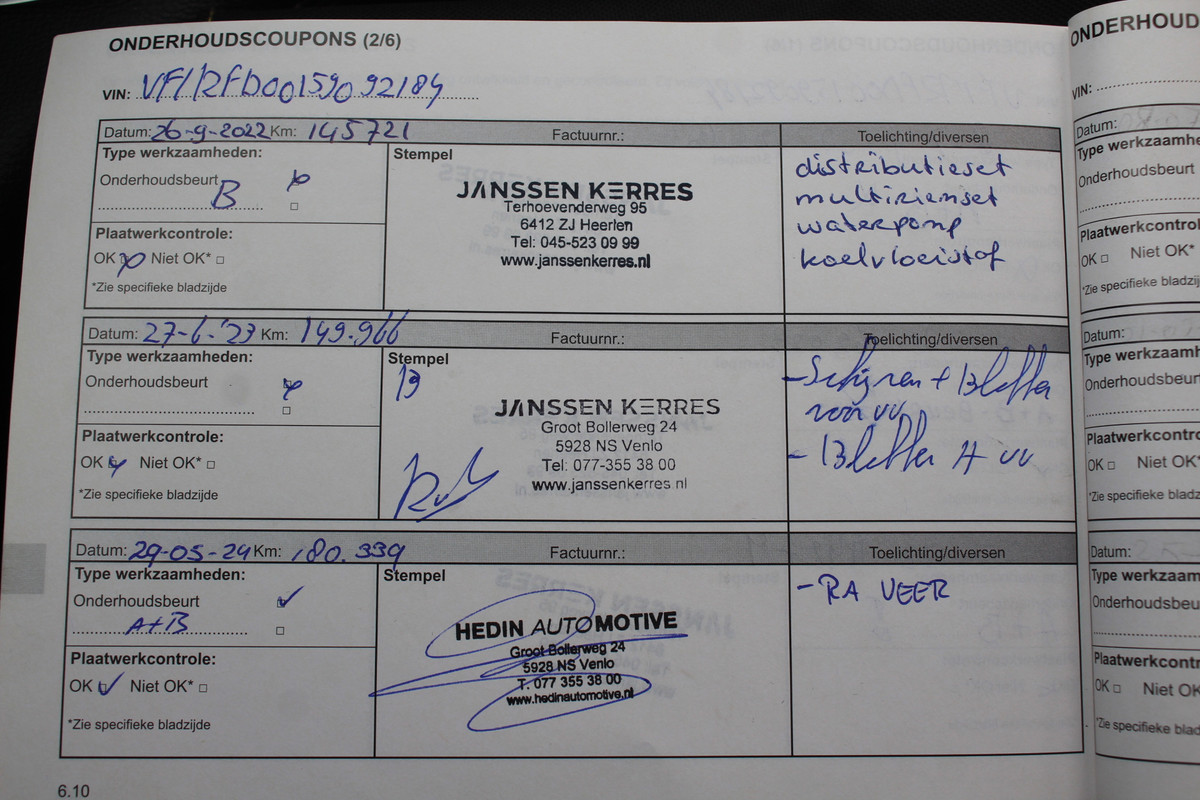 ONDERHOUDSCOUPONS (2/6)
VIN: VF1RFD00159092184
Datum: 26-9-2022 Km: 145721 Factuurnr.: Toelichting/diversen
Type werkzaamheden:
Onderhoudsbeurt
B
Plaatwerkcontrole:
OK Niet OK*
*Zie specifieke bladzijde
Stempel
JANSSEN KERRES
Terhoevenderweg 95
6412 ZJ Heerlen
Tel: 045-523 09 99
www.janssenkerres.nl
distributieset
multiriemset
waterpomp
koelvloeistof
Datum: 27-6-'23 Km: 149.966 Factuurnr.: Toelichting/diversen
Type werkzaamheden:
Onderhoudsbeurt
Plaatwerkcontrole:
OK Niet OK*
*Zie specifieke bladzijde
Stempel
B
JANSSEN KERRES
Groot Bollerweg 24
5928 NS Venlo
Tel: 077-355 38 00
www.janssenkerres.nl
- Schijven + Blokken
- Blokken A
Datum: 29-05-24 Km: 180.339 Factuurnr.: Toelichting/diversen
Type werkzaamheden:
Onderhoudsbeurt
A+B
Plaatwerkcontrole:
OK Niet OK*
*Zie specifieke bladzijde
Stempel
HEDIN AUTOMOTIVE
Groot Bollerweg 24
5928 NS Venlo
T. 077 355 38 00
www.hedinautomotive.nl
- RA VEER
6.10
ONDERHOUD
VIN:
Datum:
Type werkzaamhe
Onderhoudsbeurt
Plaatwerkcontrol
OK Niet OK*
*Zie specifieke bladzij
Datum:
Type werkzaamh
Onderhoudsbeur
Plaatwerkcontro
OK Niet OK*
*Zie specifieke bladz
Datum:
Type werkzaam
Onderhoudsbeu
Plaatwerkcontr
OK Niet OK*
*Zie specifieke blad